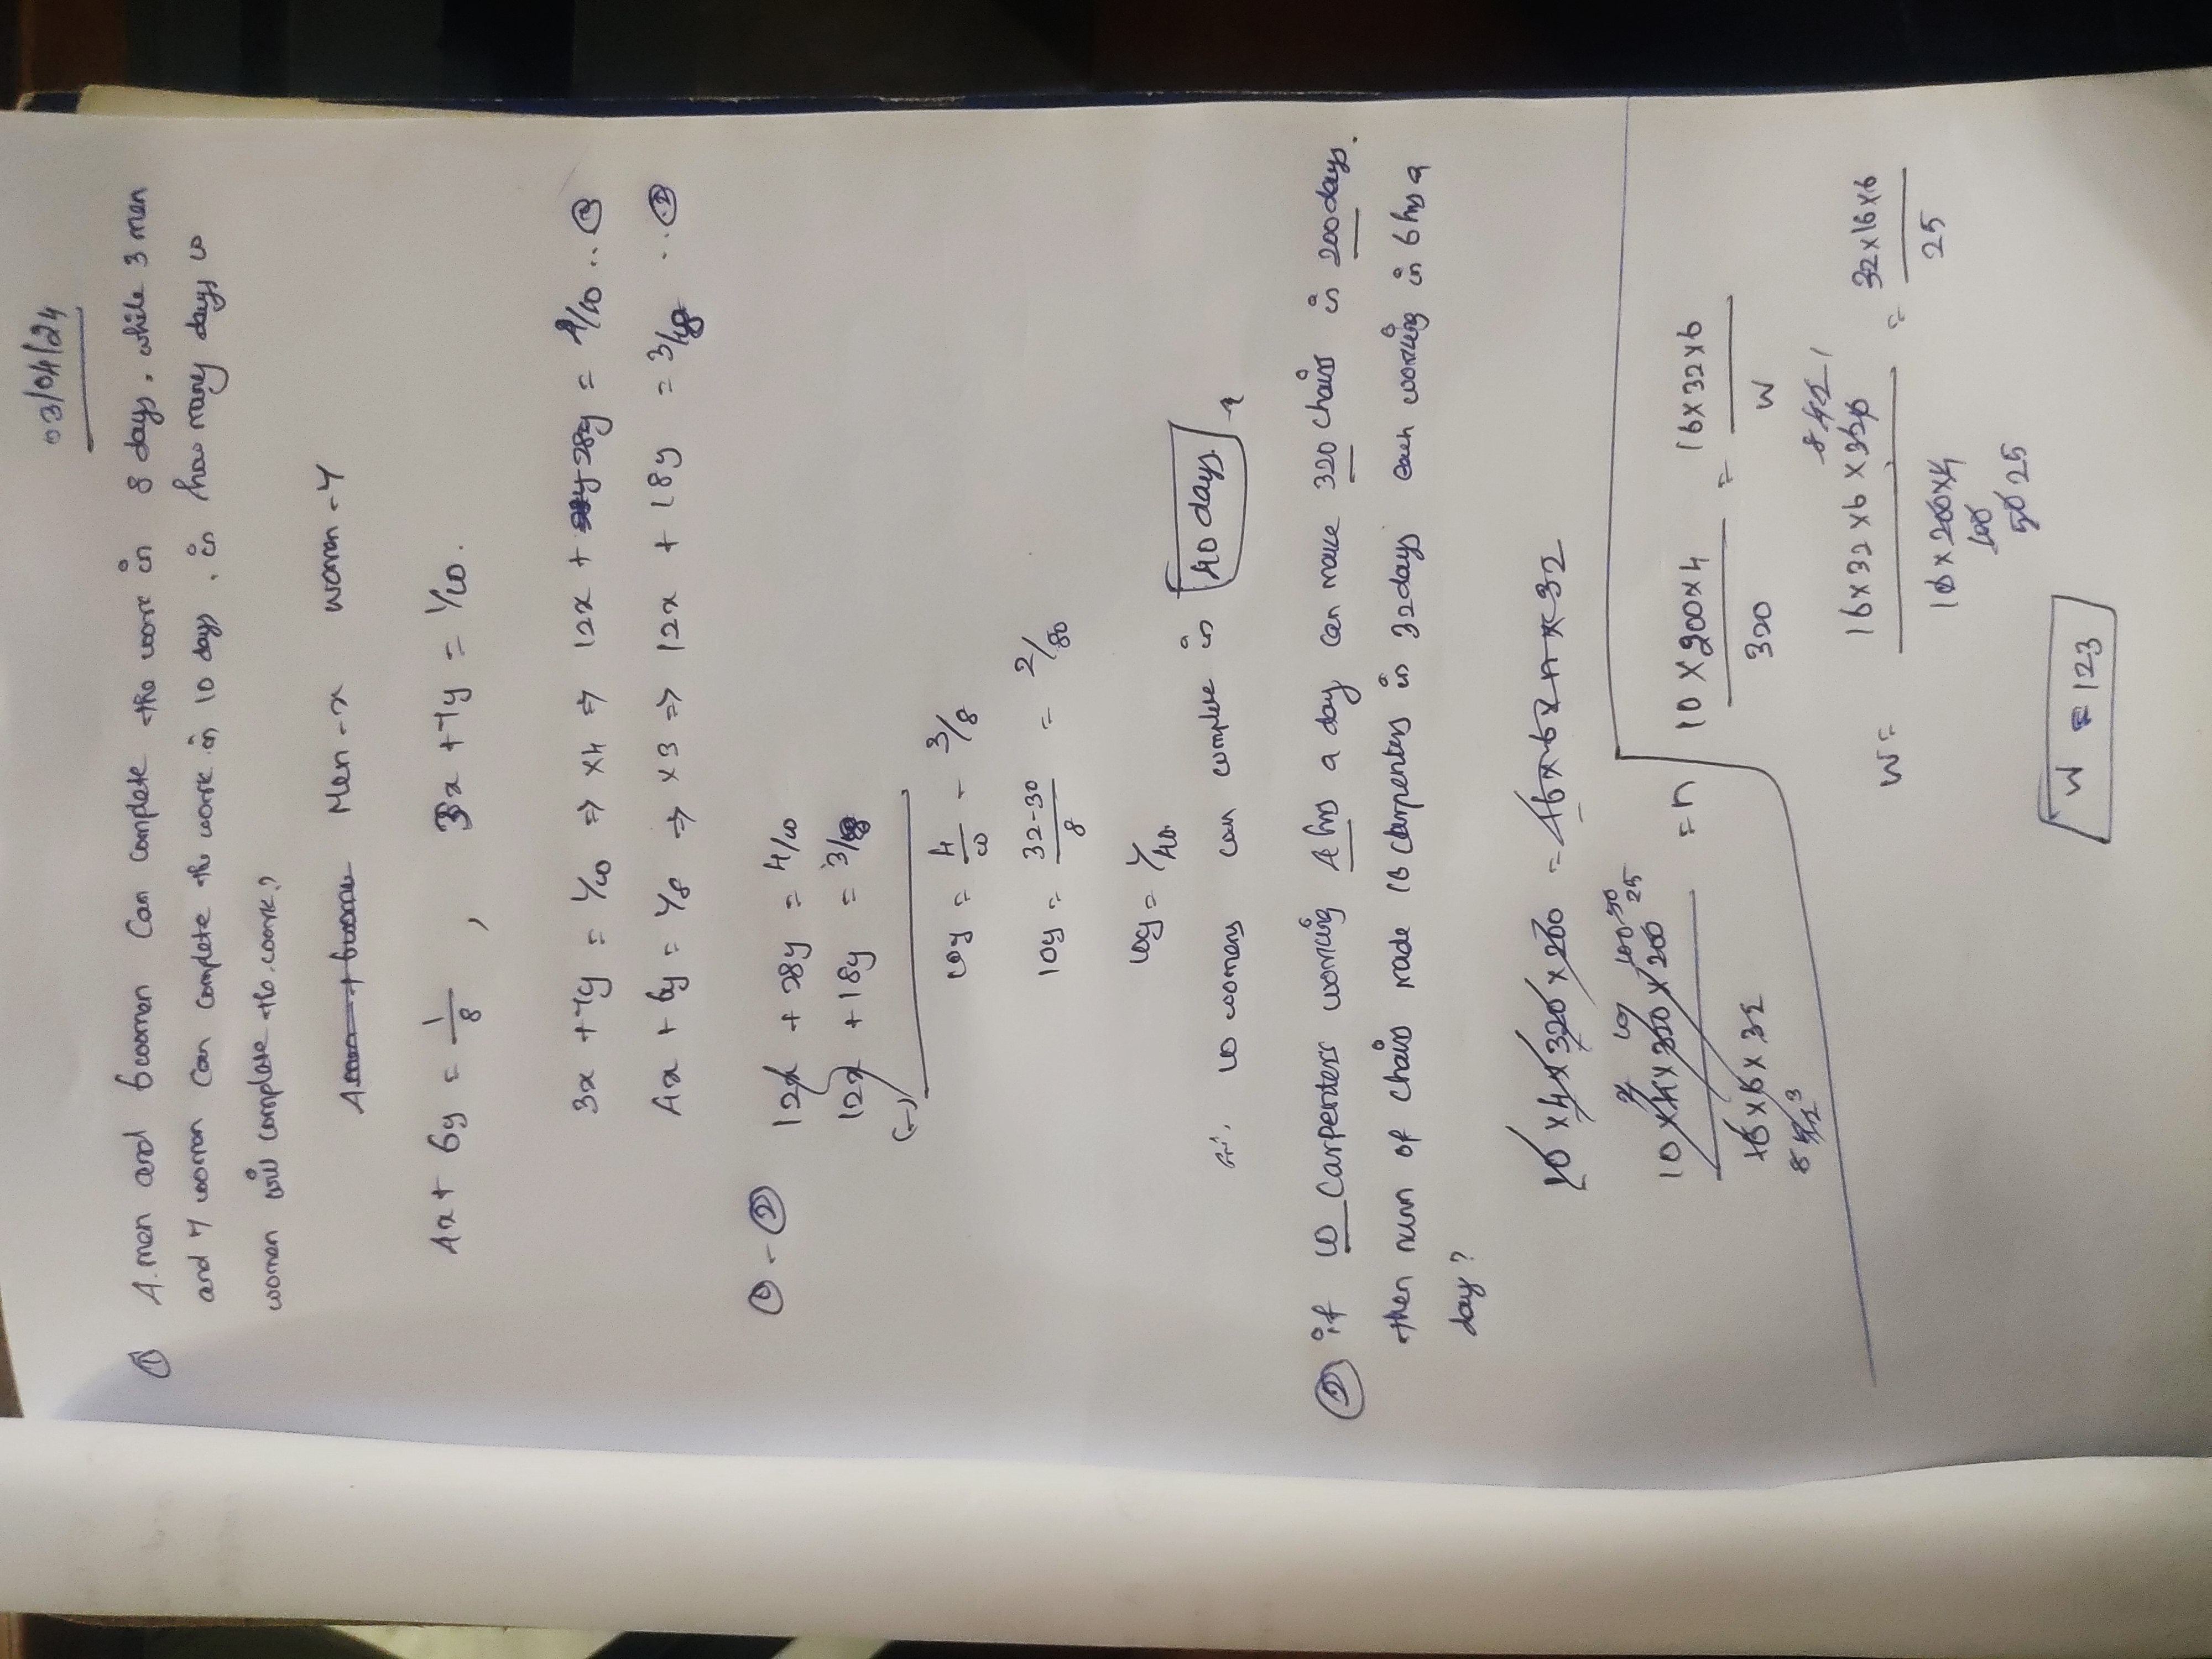 03/04/24
① 4 men and 6 women Can complete the work in 8 days, while 3 men
and 7 women Can complete the work in 10 days, in how many days 10
women will complete the work?
4 men + 6 wome Men - x Women - y
4x + 6y = 1/8 , 3x + 7y = 1/10.
3x + 7y = 1/10 ⇒ x4 ⇒ 12x + 28y = 4/10 ..
4x + 6y = 1/8 ⇒ x3 ⇒ 12x + 18y = 3/8 .. ②
① - ②
12x + 28y = 4/10
12x + 18y = 3/8
(-)
10y = 4/10 - 3/8
10y = 32-30/8 = 2/80
10y = 1/40
10 womens can complete in 40 days.
② if 10 Carpenters working 4 hrs a day can make 320 chairs in 200 days.
then num of chairs made 16 Carpenters in 32 days each working in 6 hrs a
day?
10 x 4 x 320 x 200 = 16 x 6 x n x 32
2 10 100 50 25
10 x 4 x 320 x 200 / 16 x 6 x 32 = n
8 4 2 3
10 x 200 x 4 / 320 = 16 x 32 x 6 / W
8 4 2 1
W = 16 x 32 x 6 x 320 / 10 x 200 x 4 = 32 x 16 x 6 / 25
100
50 25
W = 123